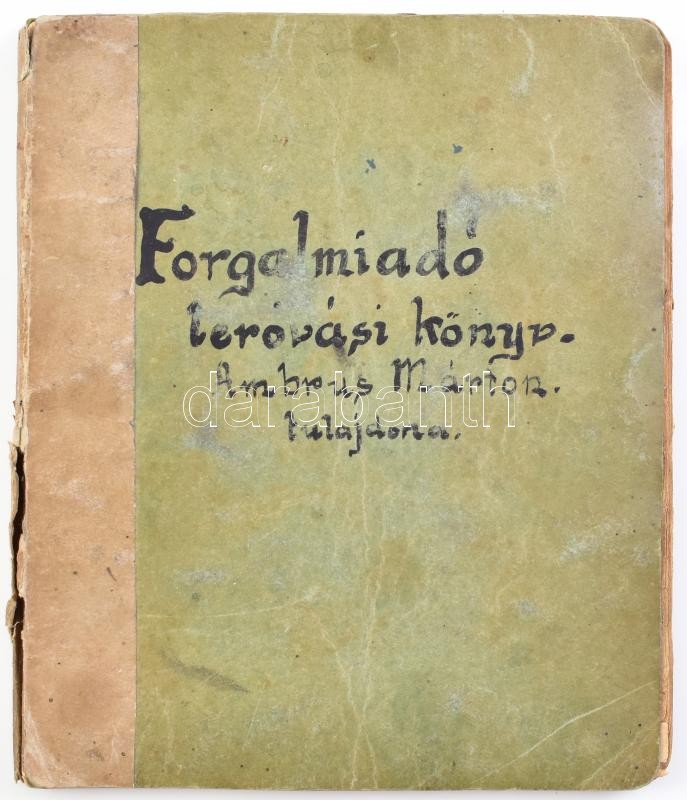 Forgalmiadó
leróvási könyv.
Ambrus Márton.
tulajdona.
darabanth